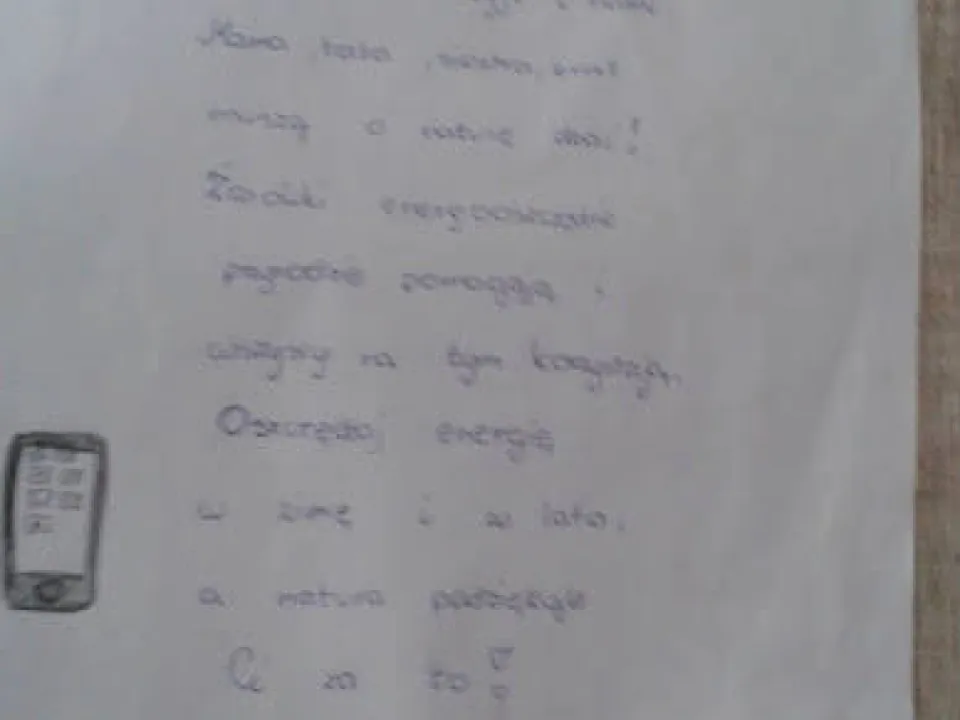 Mama, tata, siostra, brat
muszą o naturę dbać!
Żarówki energooszczędne
przyrodzie pomagają i
wszyscy na tym korzystają.
Oszczędzaj energię
w zimę i w lato,
a natura podziękuje
Ci za to!